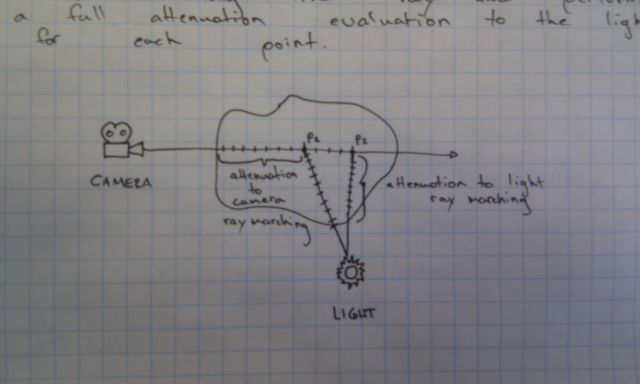 a full attenuation evaluation to the ligh
for each point.
P1 P2
CAMERA
attenuation
to
camera
ray marching
attenuation to light
ray marching
LIGHT